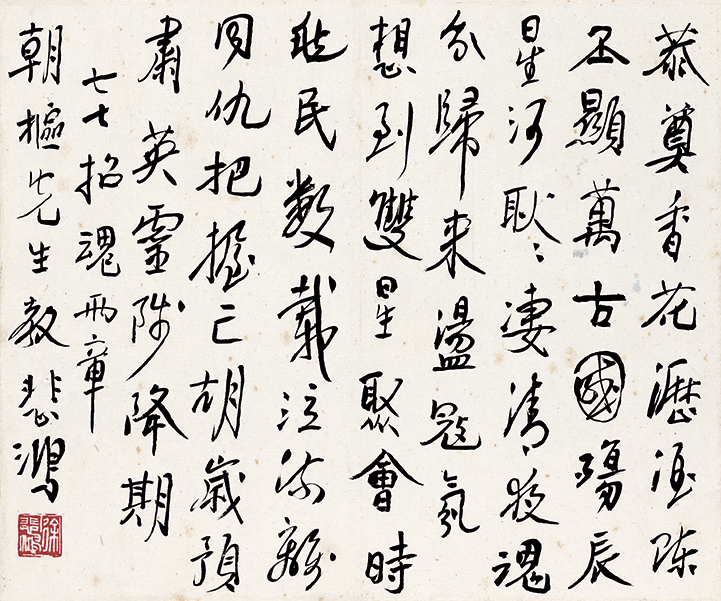 恭奠香花瀝酒陳
丕顯萬古國殤辰
星河耿〻淒清夜魂
兮歸来盪寇氛
想到雙星聚會時
兆民数載泣流離
同仇把握亡胡歲預
肅英靈陟降期
七七招魂兩章
朝樞先生教 悲鴻
徐悲鴻